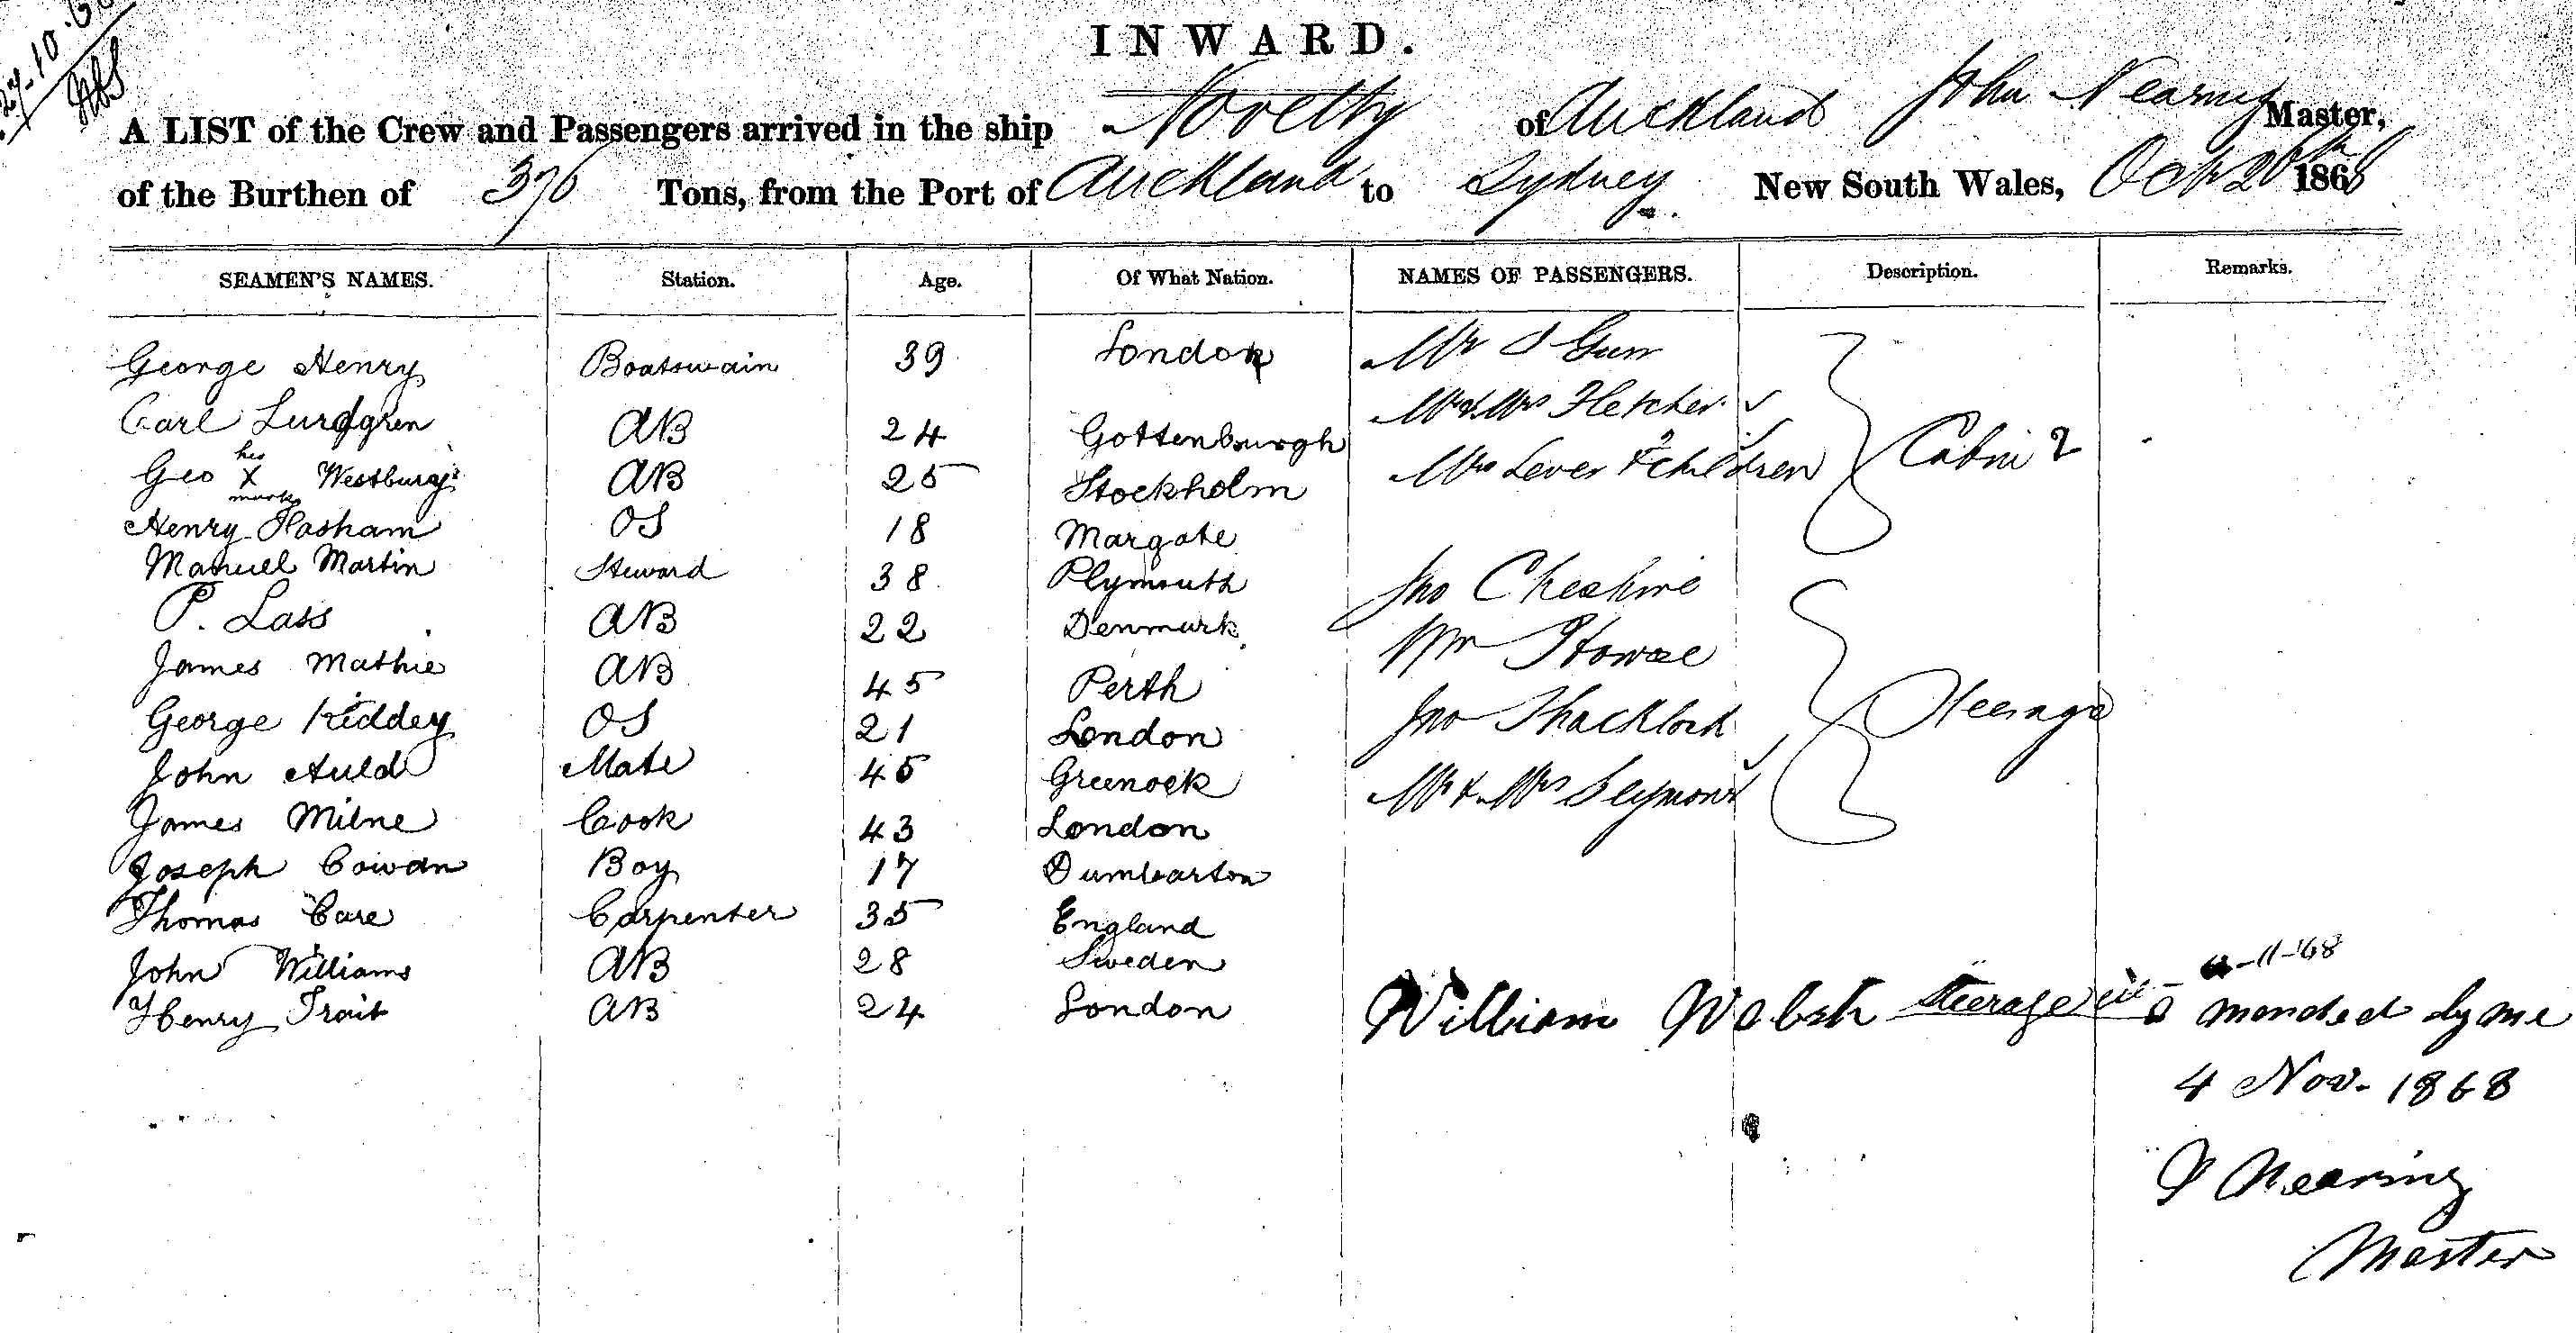 27-10-68
INWARD.
A LIST of the Crew and Passengers arrived in the ship Novelty of Auckland John Nearing Master,
of the Burthen of 376 Tons, from the Port of Auckland to Sydney New South Wales, Oct 26th 1868
SEAMEN'S NAMES. Station. Age. Of What Nation. NAMES OF PASSENGERS. Description. Remarks.
George Henry Boatswain 39 London Mr J Gun
Carl Lundgren AB 24 Gottenburgh Mr & Mrs Fletcher
Geo his X mark Westburg AB 25 Stockholm Mrs Lever & 2 children Cabin
Henry Hasham OS 18 Margate
Manuel Martin Steward 38 Plymouth Jno Cheshire
P. Lass AB 22 Denmark Wm Howse
James Mathie AB 45 Perth
George Kiddey OS 21 London Jno Shacklock Steerage
John Auld Mate 45 Greenock Mr & Mrs Seymour
James Milne Cook 43 London
Joseph Cowan Boy 17 Dumbarton
Thomas Care Carpenter 35 England
John Williams AB 28 Sweden 4-11-68
Henry Trait AB 24 London William Welsh steerage amended by me
4 Nov. 1868
J Nearing
Master